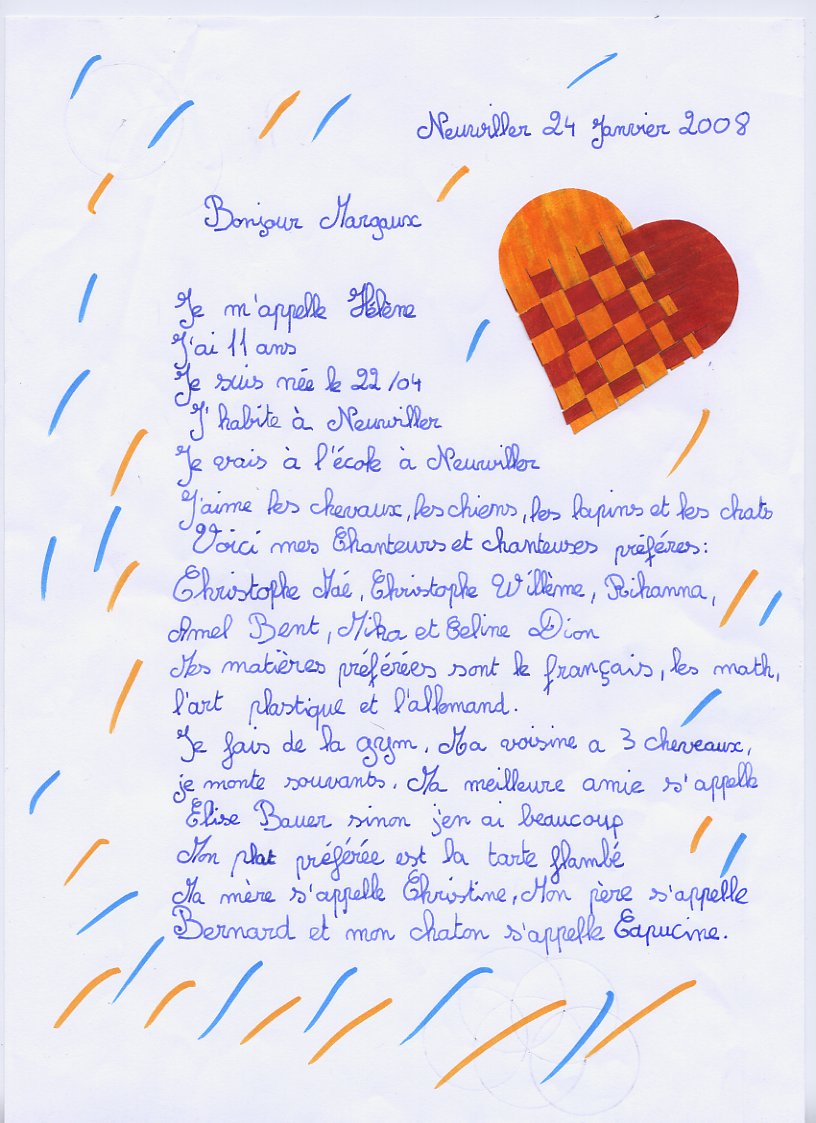 Neuwiller 24 Janvier 2008
Bonjour Margaux
Je m'appelle Hélène
J'ai 11 ans
Je suis née le 22/04
J'habite à Neuwiller
Je vais à l'école à Neuwiller
J'aime les chevaux, les chiens, les lapins et les chats
Voici mes Chanteurs et chanteuses préférés:
Christophe Maé, Christophe Willème, Rihanna,
Amel Bent, Mika et Celine Dion
Mes matières préférées sont le français, les math,
l'art plastique et l'allemand.
Je fais de la gym. Ma voisine a 3 cheveaux,
je monte souvants. Ma meilleure amie s'appelle
Elise Bauer sinon j'en ai beaucoup
Mon plat préférée est la tarte flambé
Ma mère s'appelle Christine, Mon père s'appelle
Bernard et mon chaton s'appelle Capucine.